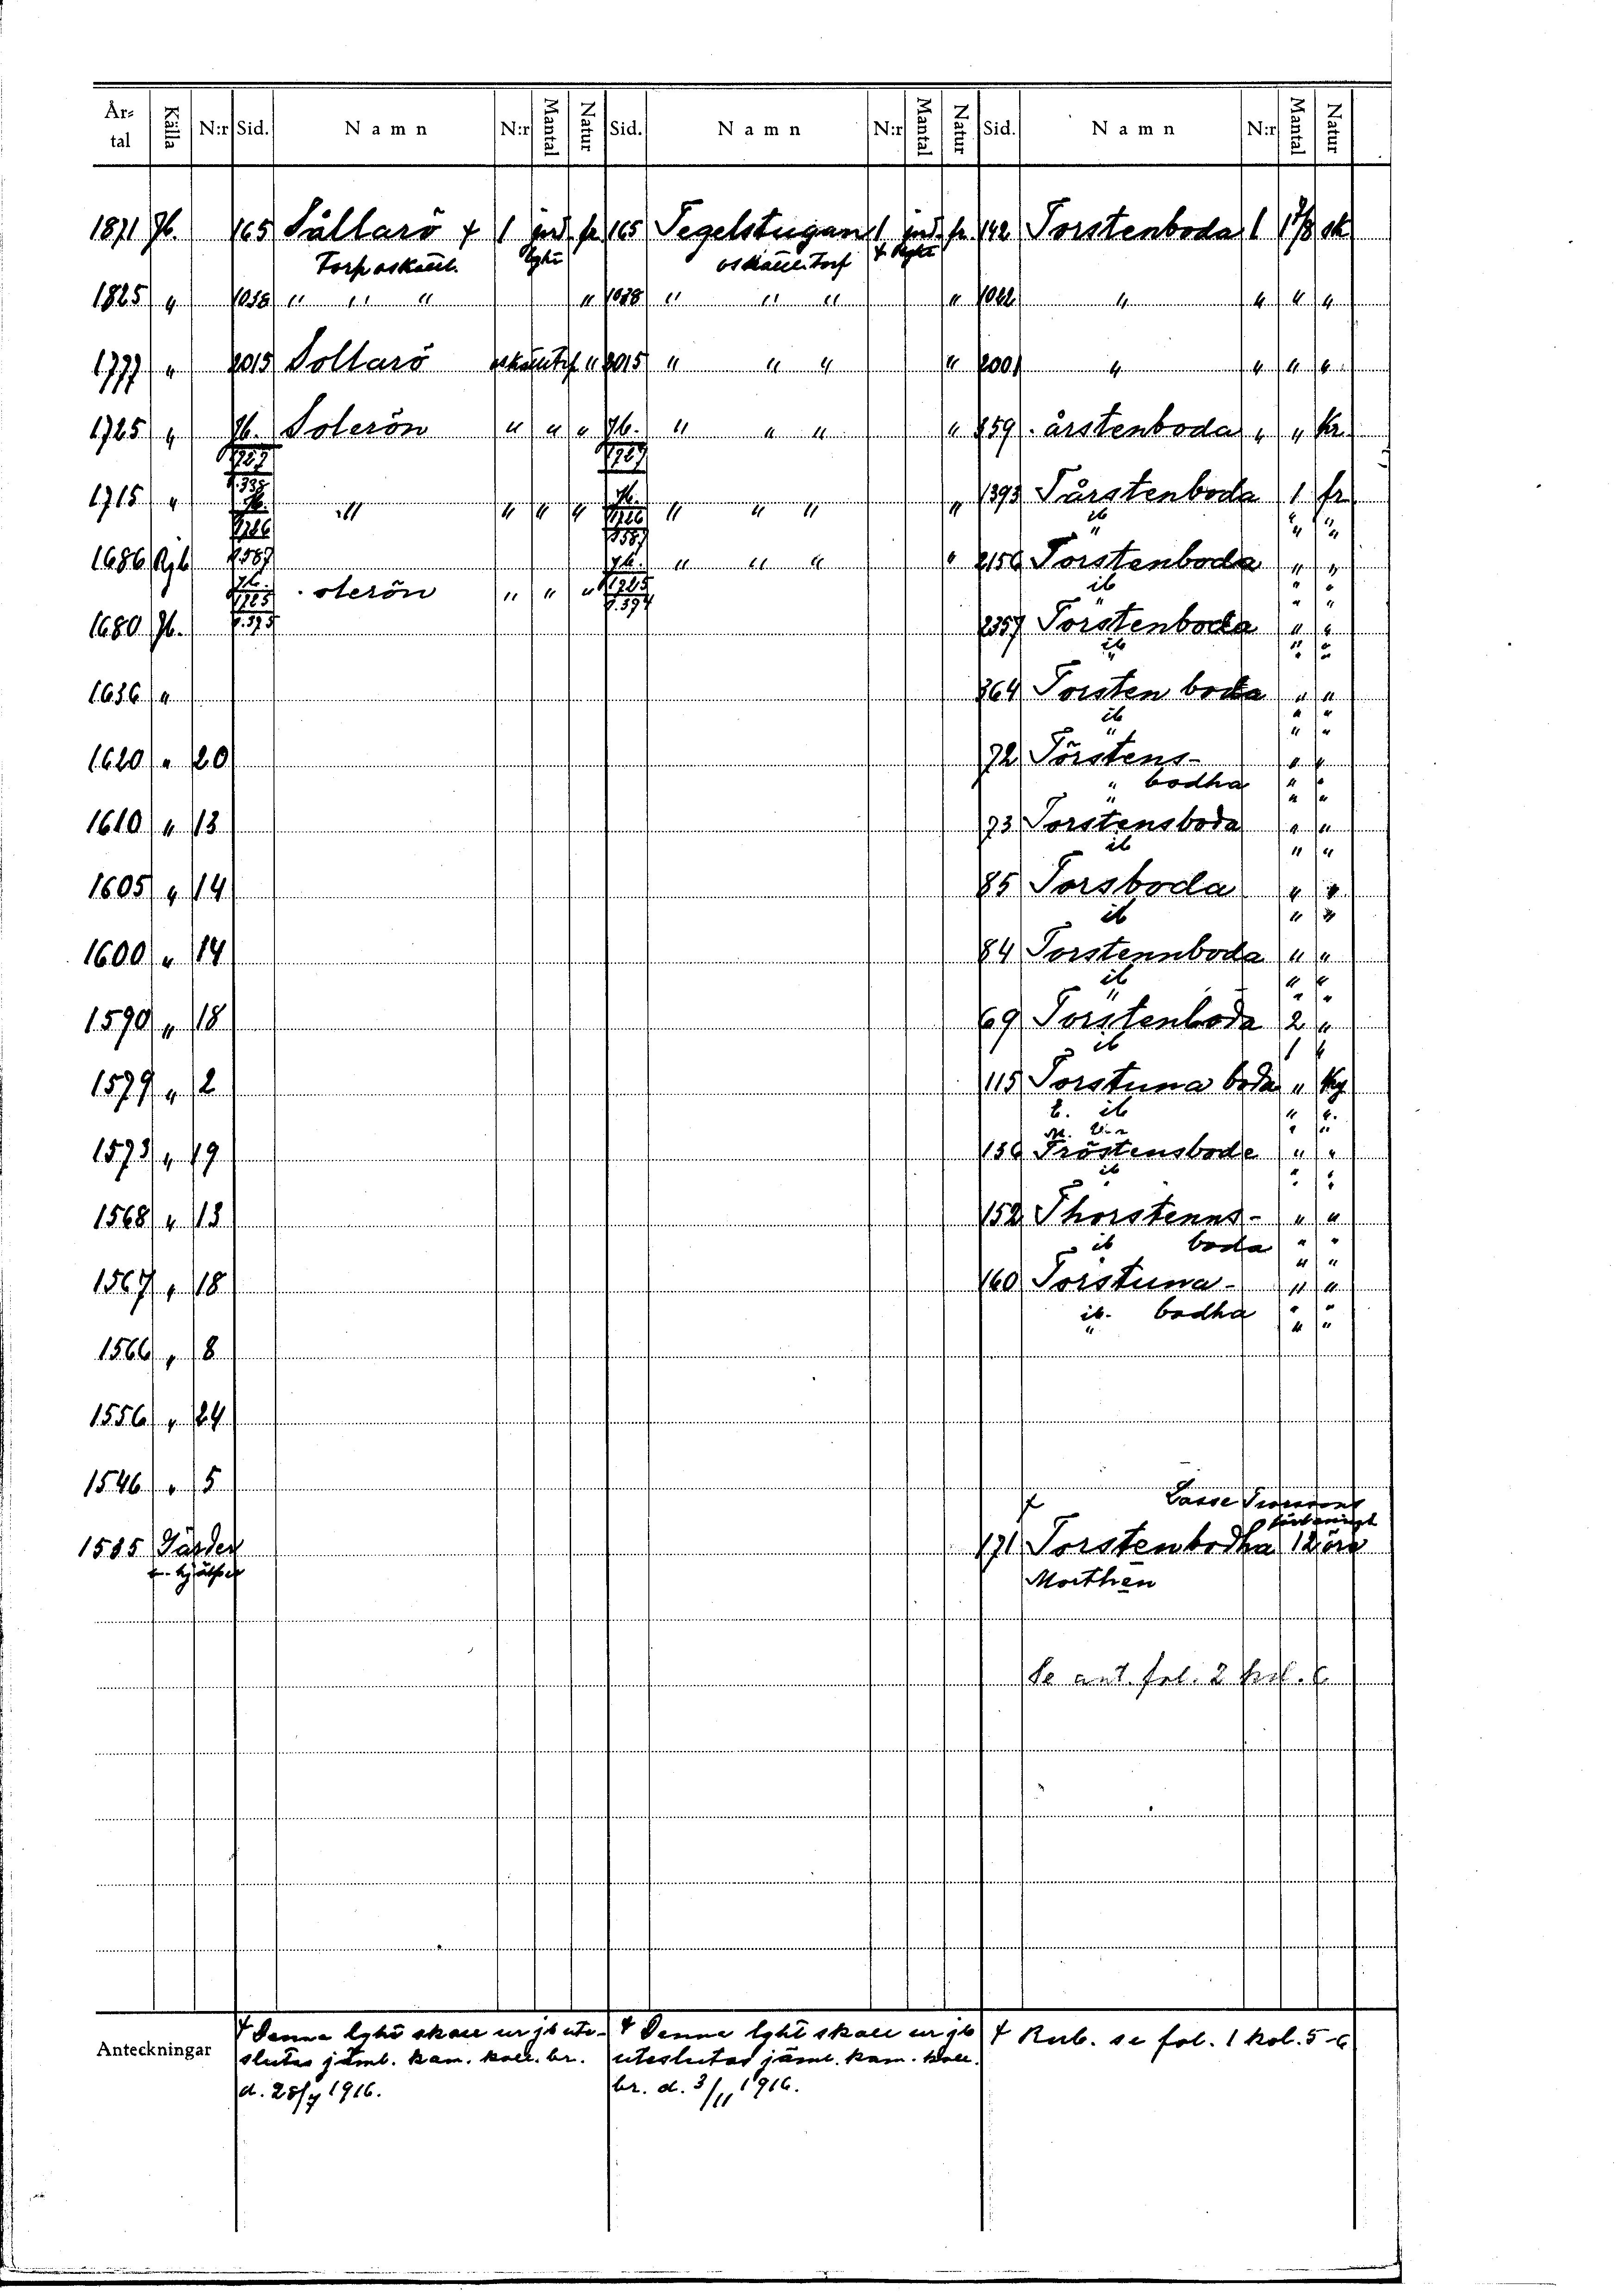 År-tal Källa N:r Sid. Namn N:r Mantal Natur Sid. Namn N:r Mantal Natur Sid. Namn N:r Mantal Natur
1871 Jb. 165 Sållarö + 1 jord fr 165 Tegelstugan 1 jord fr 142 Torstenboda 1 1 7/8 sk
Torp oskattl. lght oskattl. Torp + lght
1825 " 1038 " " " " 1038 " " " " 1022 " " " "
1777 " 2015 Sollarö " 2015 " " " " 2001 " " " "
1725 " Jb. Solerön " " " Jb. " " " " 859 . årstenboda " " Kr
1727 1727
1715 " Jb. " " " " Jb. " " " " 1393 Tårstenboda 1 fr
1726 1726 ib " "
1686 Rjb p. 587 p. 587 Jb. " " " " 2156 Torstenboda " "
Jb. 1725 . olerön " " " 1725 p. 394 ib " "
1680 Jb. p. 395 2357 Torstenboda " "
ib " "
1636 " 364 Torsten boda " "
ib " "
1620 " 20 72 Törstens- " "
" bodha " "
1610 " 13 73 Torstensboda " "
ib " "
1605 " 14 85 Torsboda " "
ib " "
1600 " 14 84 Torstennboda " "
ib " "
1590 " 18 69 Torstenboda 2 "
ib 1 "
1579 " 2 115 Torstuna boda " Kg
ib " "
1573 " 19 156 Tröstensbode " "
ib " "
1568 " 13 152 Thorstenns- " "
ib boda " "
1567 " 18 160 Torstuna- " "
ib. bodha " "
1566 " 8
1556 " 24
1546 " 5
+ Lasse
1535 Gärder 171 Torstenbodha 12 öre
Morthen
Se ant. fol. 2 kol. 6
Anteckningar
+ Denna lght skall ur jb ute-
slutas jäml. kam. koll. br.
d. 28/7 1916.
+ Denna lght skall ur jb
uteslutas jäml. kam. koll.
br. d. 3/11 1916.
+ Rub. se fol. 1 kol. 5-6